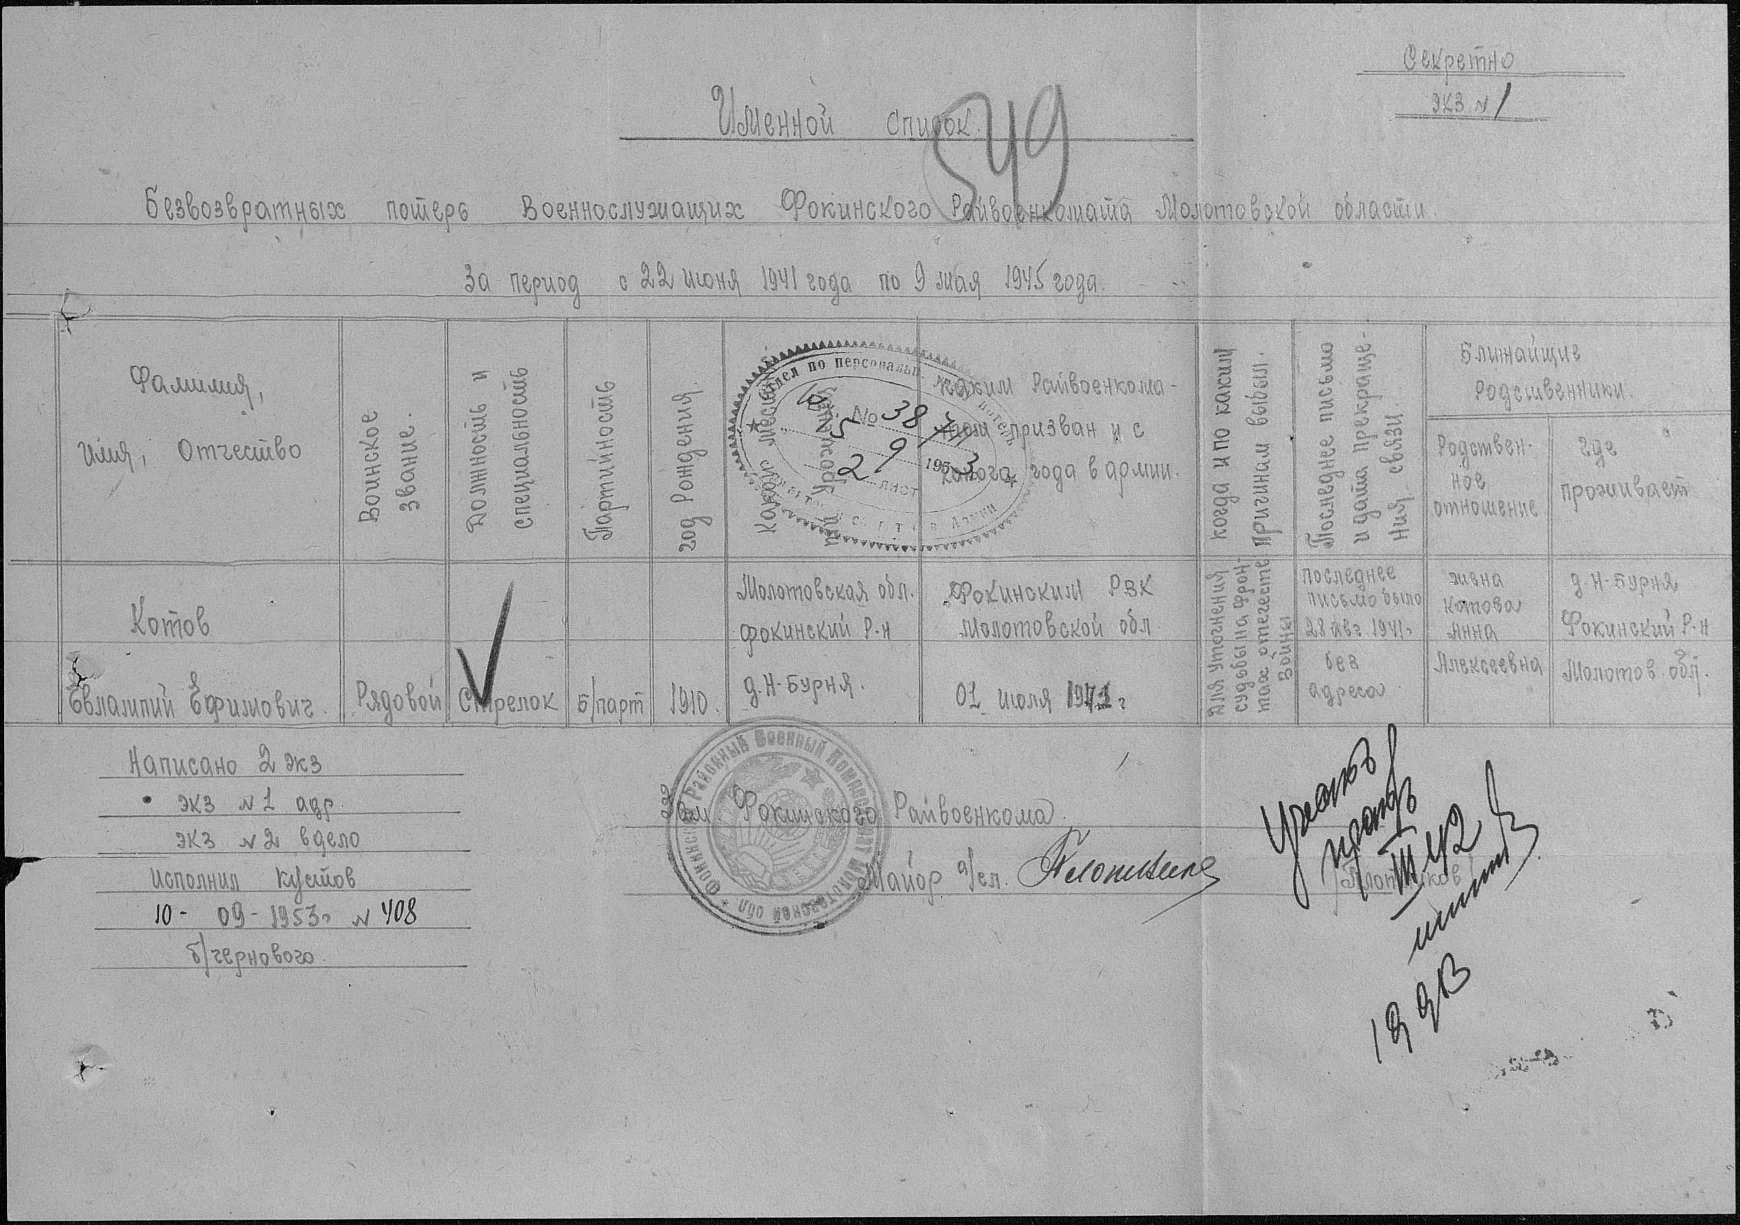 Секретно
экз №1
Именной список
549
Безвозвратных потерь Военнослужащих Фокинского Райвоенкомата Молотовской области.
За период с 22 июня 1941 года по 9 мая 1945 года.
Фамилия,
имя, Отчество
Воинское
звание.
Должность и
специальность
Партийность
год рождения.
Которой местности
уроженец
каким Райвоенкома-
том призван и с
какого года в армии.
когда и по каким
Причинам выбыл.
Последнее письмо
и дата прекраще-
ния связи
Ближайшие
Родственники.
Родствен-
ное
отношение
где
проживает
Отдел по персональн
Вх. № 38
1953
лист
Котов
Евлампий Ефимович.
Рядовой
Стрелок
Б/парт
1910.
Молотовская обл.
Фокинский Р-н
д.Н-Бурня.
Фокинским РВК
Молотовской обл
01 июля 1941г
Для уточнения
судьбы на фрон-
тах отечеств
войны
последнее
письмо было
28 авг 1941г
без
адреса
жена
Котова
Анна
Алексеевна
д.Н-Бурня
Фокинский Р-н
Молотов. обл.
Написано 2 экз
экз №1 адр.
экз №2 в дело
исполнил Кустов
10-09-1953г №408
б/чернового.
Зам Фокинского Райвоенкома
Майор а/сл.
Фокинский Районный Военный Комиссариат Молотовской обл